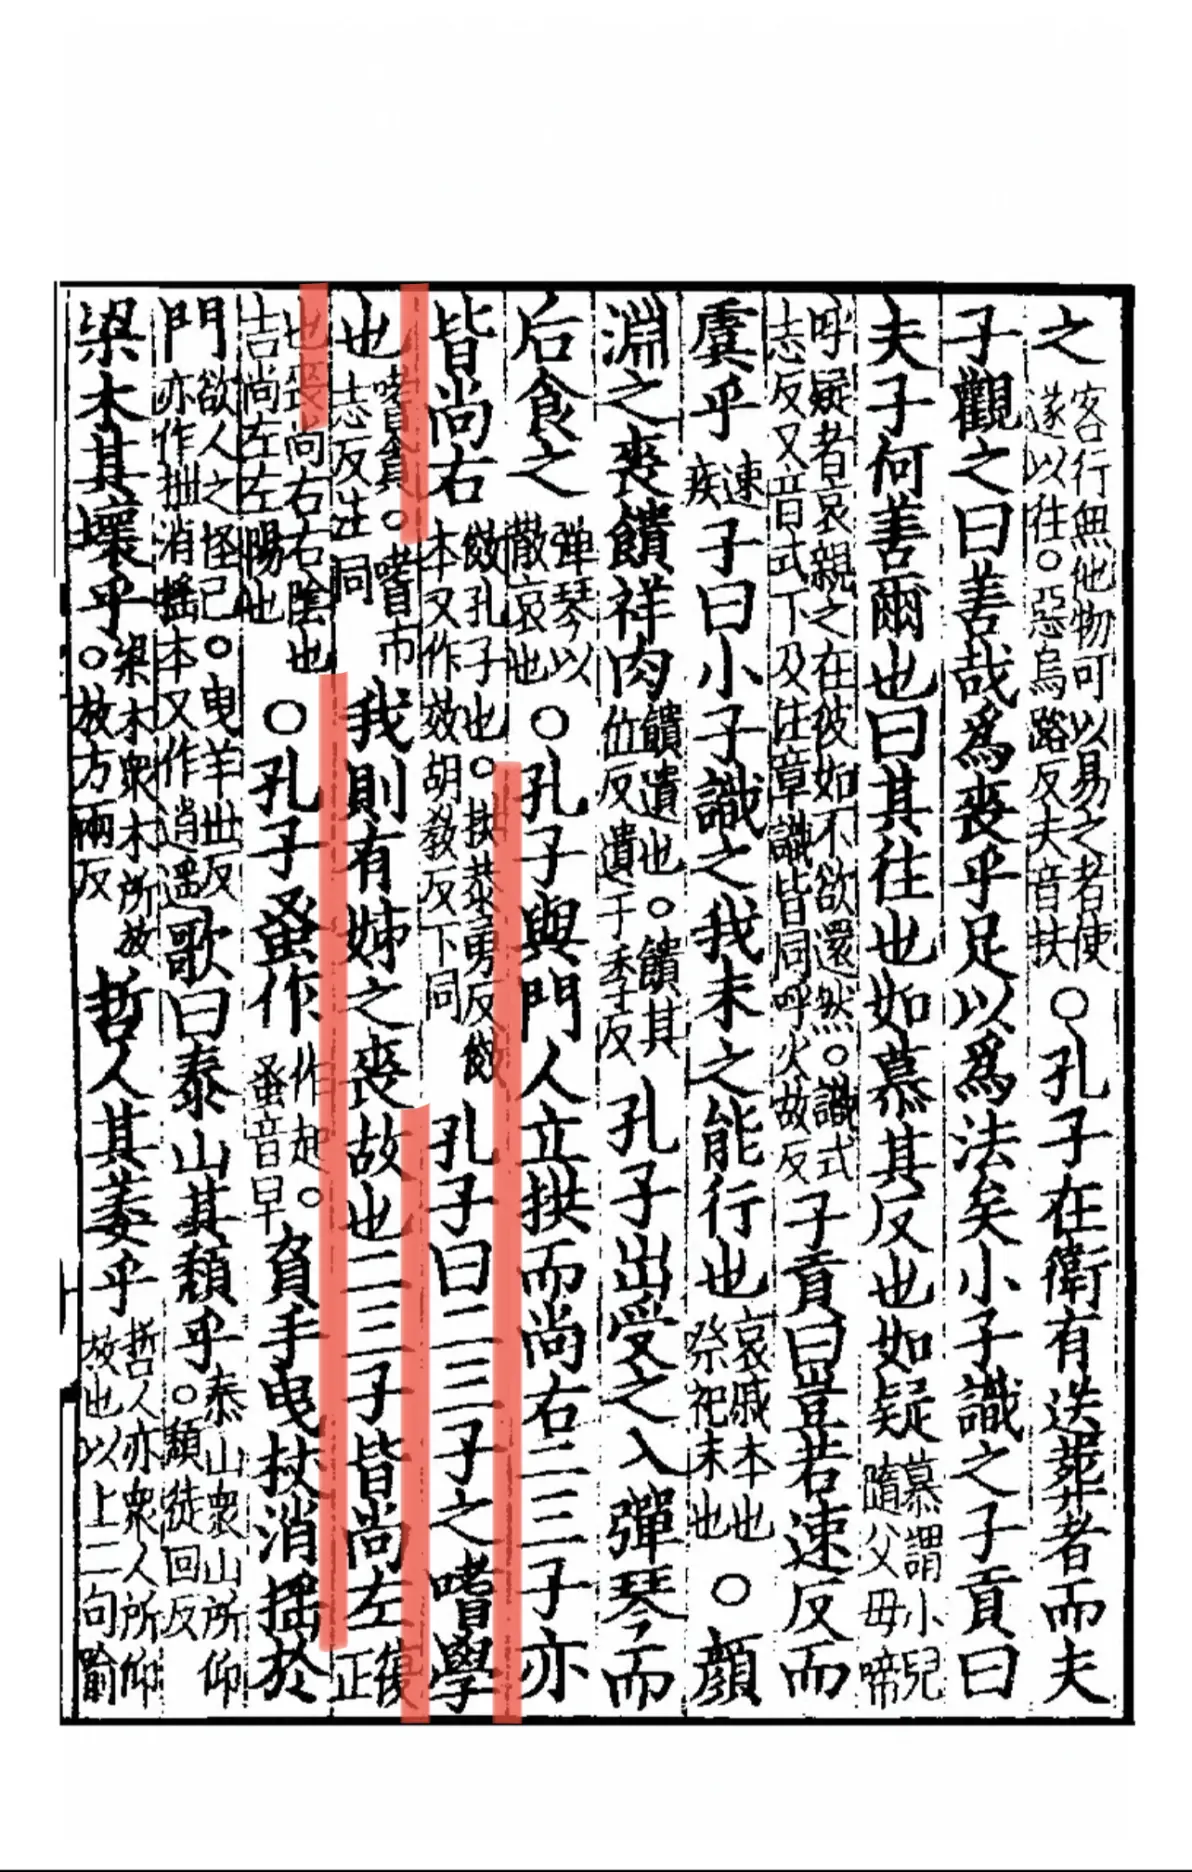 之客行無他物可以易之者使遂以往。惡烏路反夫音扶○孔子在衛有送葬者而夫
子觀之曰善哉爲喪乎足以爲法矣小子識之子貢曰
夫子何善爾也曰其往也如慕其反也如疑慕謂小兒隨父母啼
呼疑者哀親之在彼如不欲還然。識式志反又音式下及注章識皆同呼火故反子貢曰豈若速反而
虞乎速疾子曰小子識之我未之能行也哀戚本也祭祀末也○顔
淵之喪饋祥肉饋遺也。饋其位反遺于季反孔子出受之入彈琴而
后食之彈琴以散哀也○孔子與門人立拱而尚右二三子亦
皆尚右傚孔子也。拱恭勇反傚本又作效胡教反下同孔子曰二三子之嗜學
也嗜貪。嗜市志反注同我則有姊之喪故也二三子皆尚左復正
也喪尚右右陰也吉尚左左陽也○孔子蚤作作起。蚤音早負手曳杖消搖於
門欲人之怪己。曳羊世反亦作抴消搖本又作逍遥歌曰泰山其頹乎泰山衆山所仰。頹徒回反
梁木其壞乎梁木衆木所放。放方兩反哲人其萎乎哲人亦衆人所仰放也以上二句喻